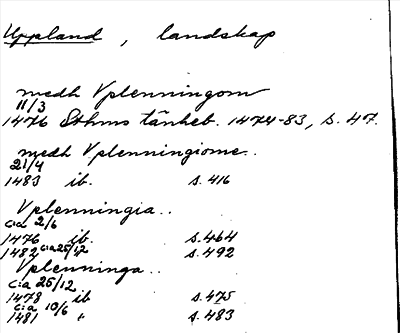 Uppland, landskap
medh Vplenningom
11/3
1476 Sthms tänkeb. 1474-83, s. 47.
medh Vplenningiome..
21/4
1483 ib. s. 416
Vplenningia..
c:a 2/6
1476 ib. s. 464
1482 c:a 25/12 s. 492
Vplenninga..
c:a 25/12
1478 ib s. 475
c:a 10/6
1481 " s. 483